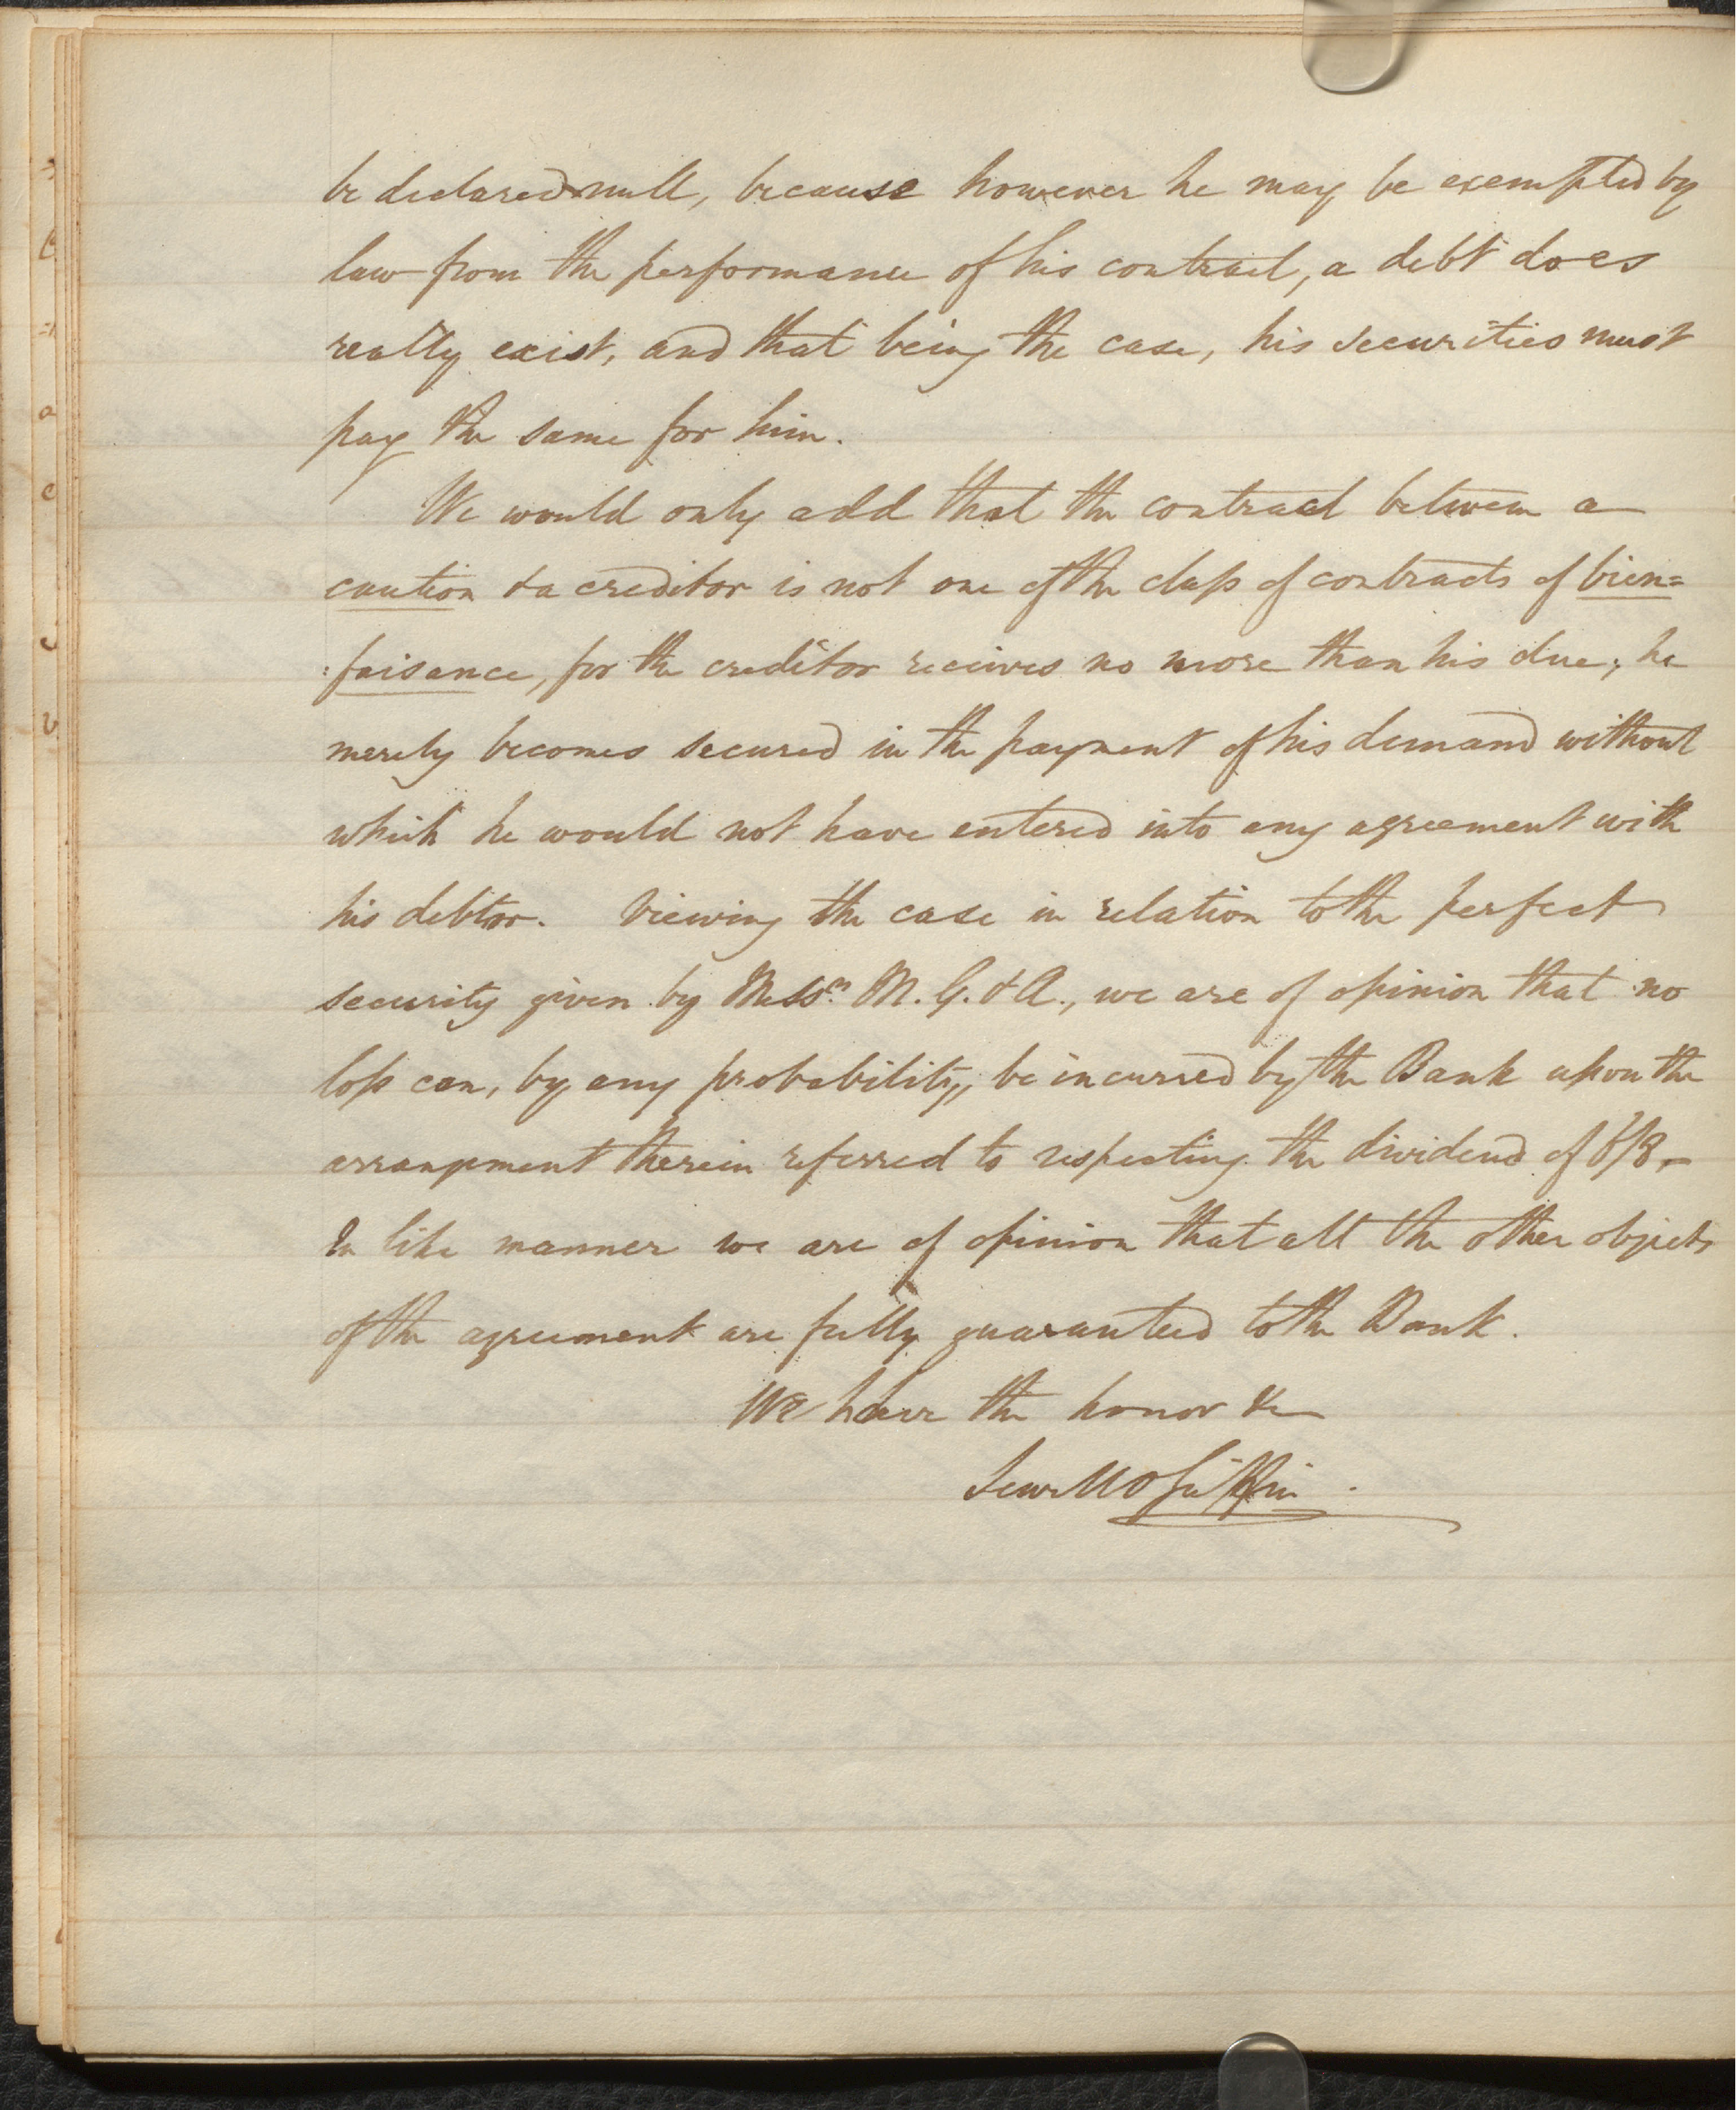 be declared null, because however he may be exempted by
law from the performance of his contract, a debt does
really exist, and that being the case, his securities must
pay the same for him.
We would only add that the contract between a
caution & a creditor is not one of the class of contracts of bien=
faisance, for the creditor receives no more than his due; he
merely becomes secured in the payment of his demand without
which he would not have entered into any agreement with
his debtor. Viewing the case in relation to the perfect
security given by Messrs. M. G. & A., we are of opinion that no
loss can, by any probability, be incurred by the Bank upon the
arrangement therein referred to respecting the dividend of 6/8.
In like manner we are of opinion that all the other objects
of the agreement are fully guaranteed to the Bank.
We have the honor &c
Sewell & Griffin.